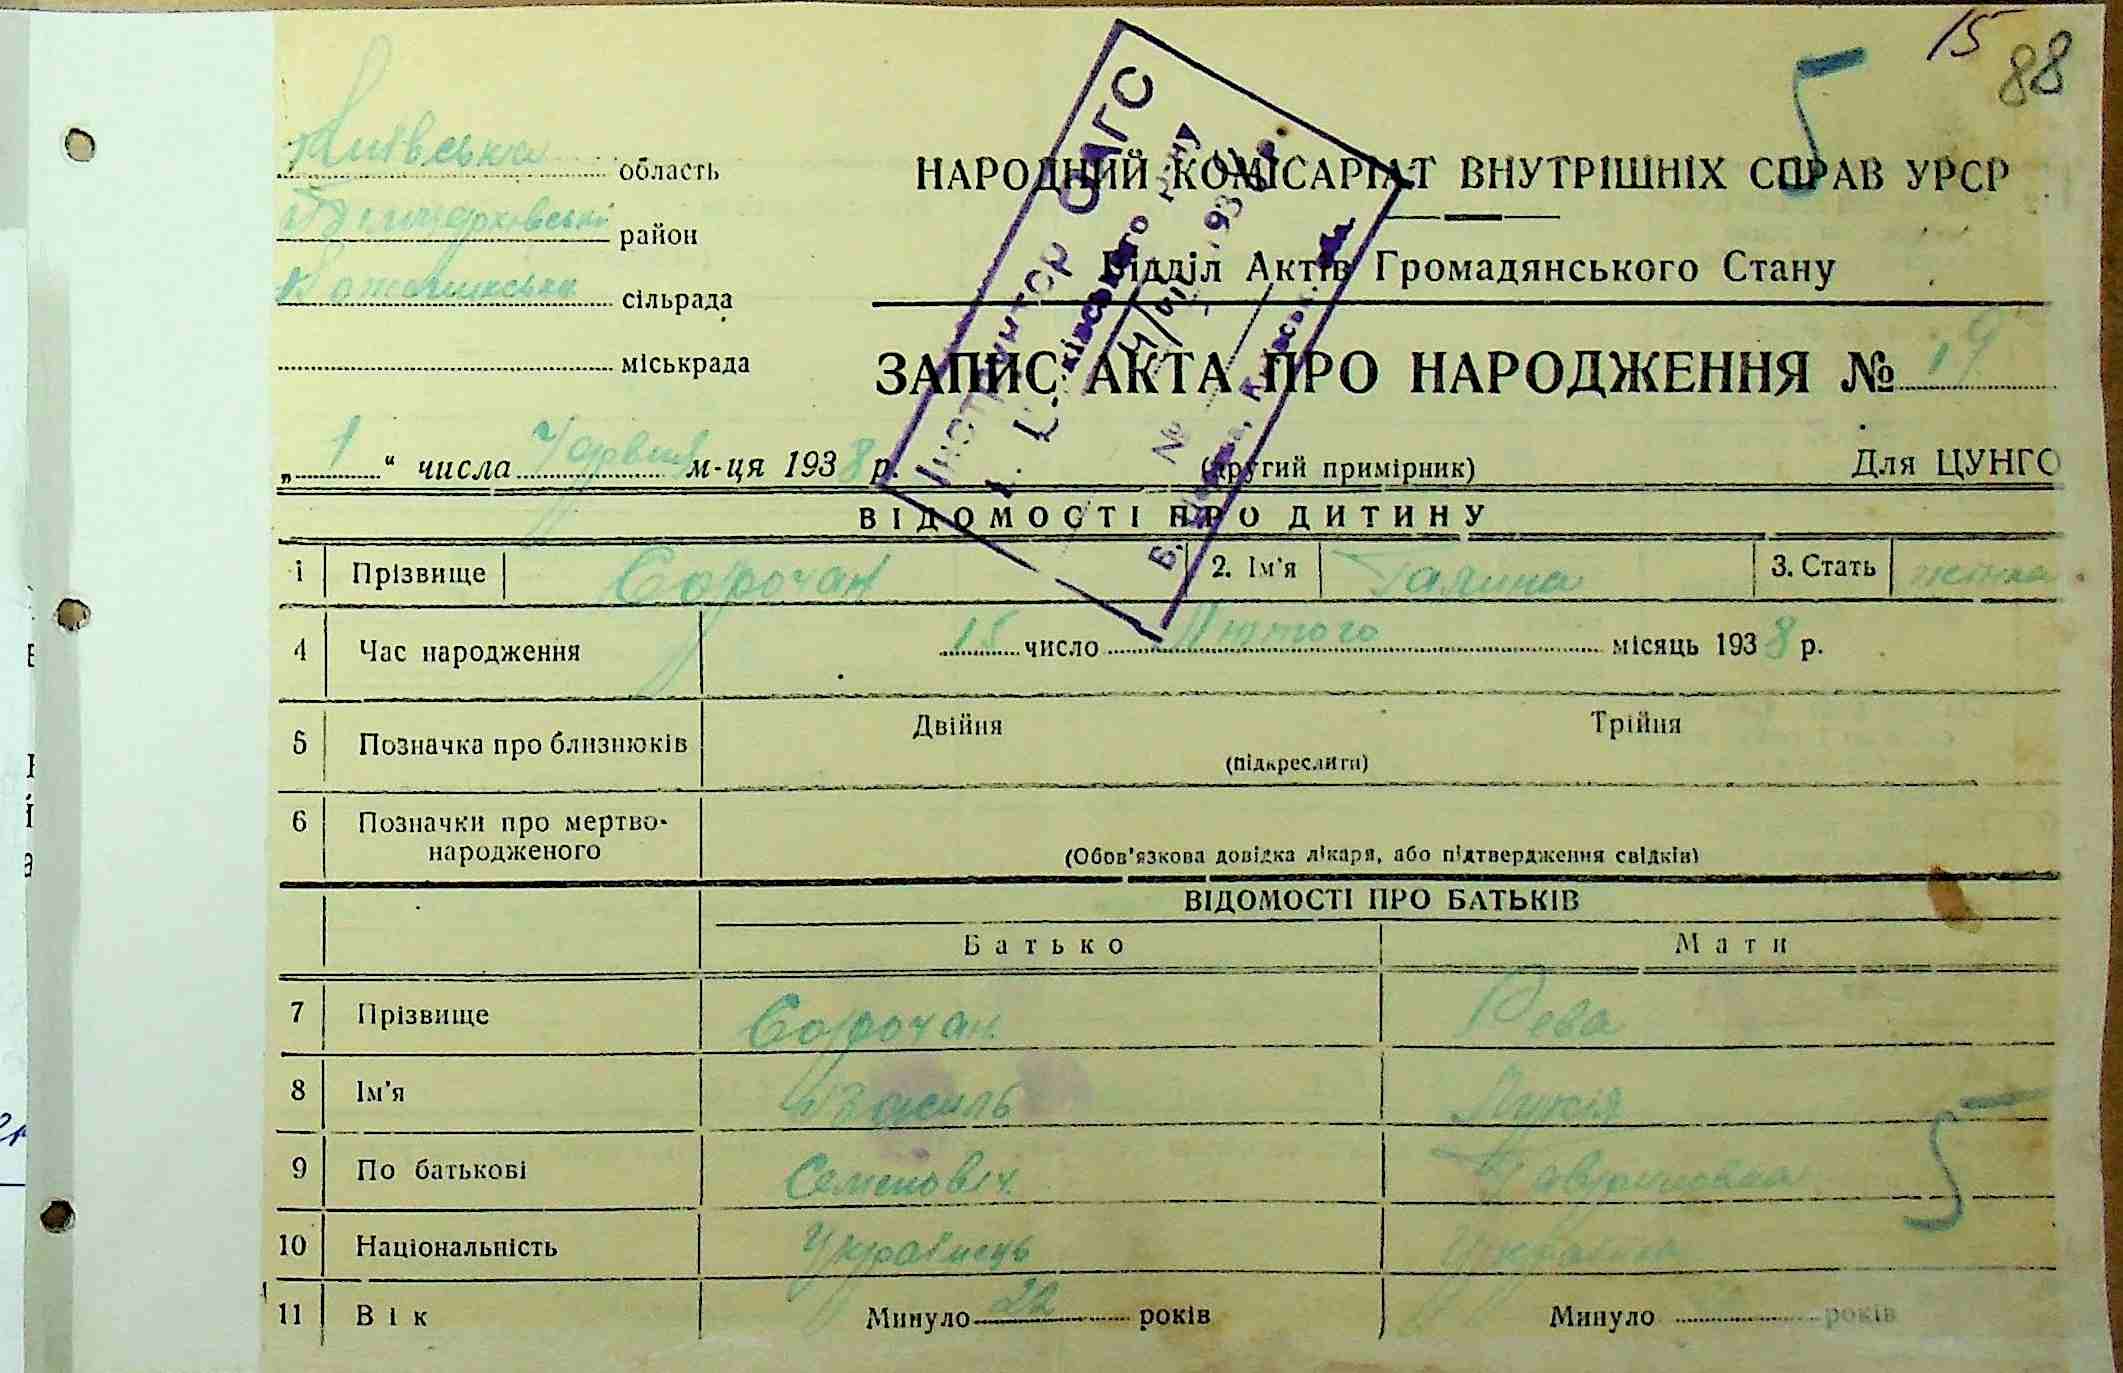 15 88
5
Київська область
район
сільрада
міськрада
НАРОДНИЙ КОМІСАРІАТ ВНУТРІШНІХ СПРАВ УРСР
Відділ Актів Громадянського Стану
ЗАПИС АКТА ПРО НАРОДЖЕННЯ № 19
„ 1 “ числа Червня м-ця 1938 р.
(другий примірник) Для ЦУНГО
Інструктор ЗАГС
ВІДОМОСТІ ПРО ДИТИНУ
1 Прізвище Сорочан 2. Ім'я Галина 3. Стать жіноча
4 Час народження 15 число Лютого місяць 1938 р.
5 Позначка про близнюків Двійня Трійня
(підкреслити)
6 Позначки про мертво-
народженого
(Обов'язкова довідка лікаря, або підтвердження свідків)
ВІДОМОСТІ ПРО БАТЬКІВ
Батько Мати
7 Прізвище Сорочан Рева
8 Ім'я Василь Лукія
5
9 По батькові Семенович
10 Національність Українець Українка
11 Вік Минуло 22 років Минуло років